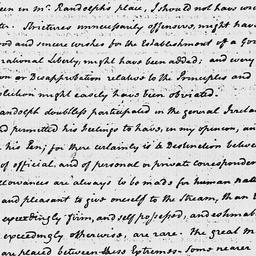 een in Mr. Randolph's place, I should not have wr
Strictures unnecessarily offensive, might have
ood and sincere wishes for the Establishment of a Go
rational Liberty, might have been added; and every
on or Disapprobation relative to the Principles and
olution might easily have been obviated.
andolph doubtless participated in the general
nd permitted his feelings to have, in my opinion,
his Pen; for there certainly is a Distinction betwee
of official and of personal or private Corresponden
llowances are always to be made for human nat
and pleasant to give oneself to the Stream, than t
exceedingly firm, and self possessed, and estimab
exceedingly otherwise, are rare. The great m
are placed between these Extremes. Some nearer